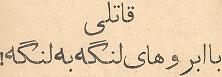 قاتلی
با ابروهای لنگه به لنگه!